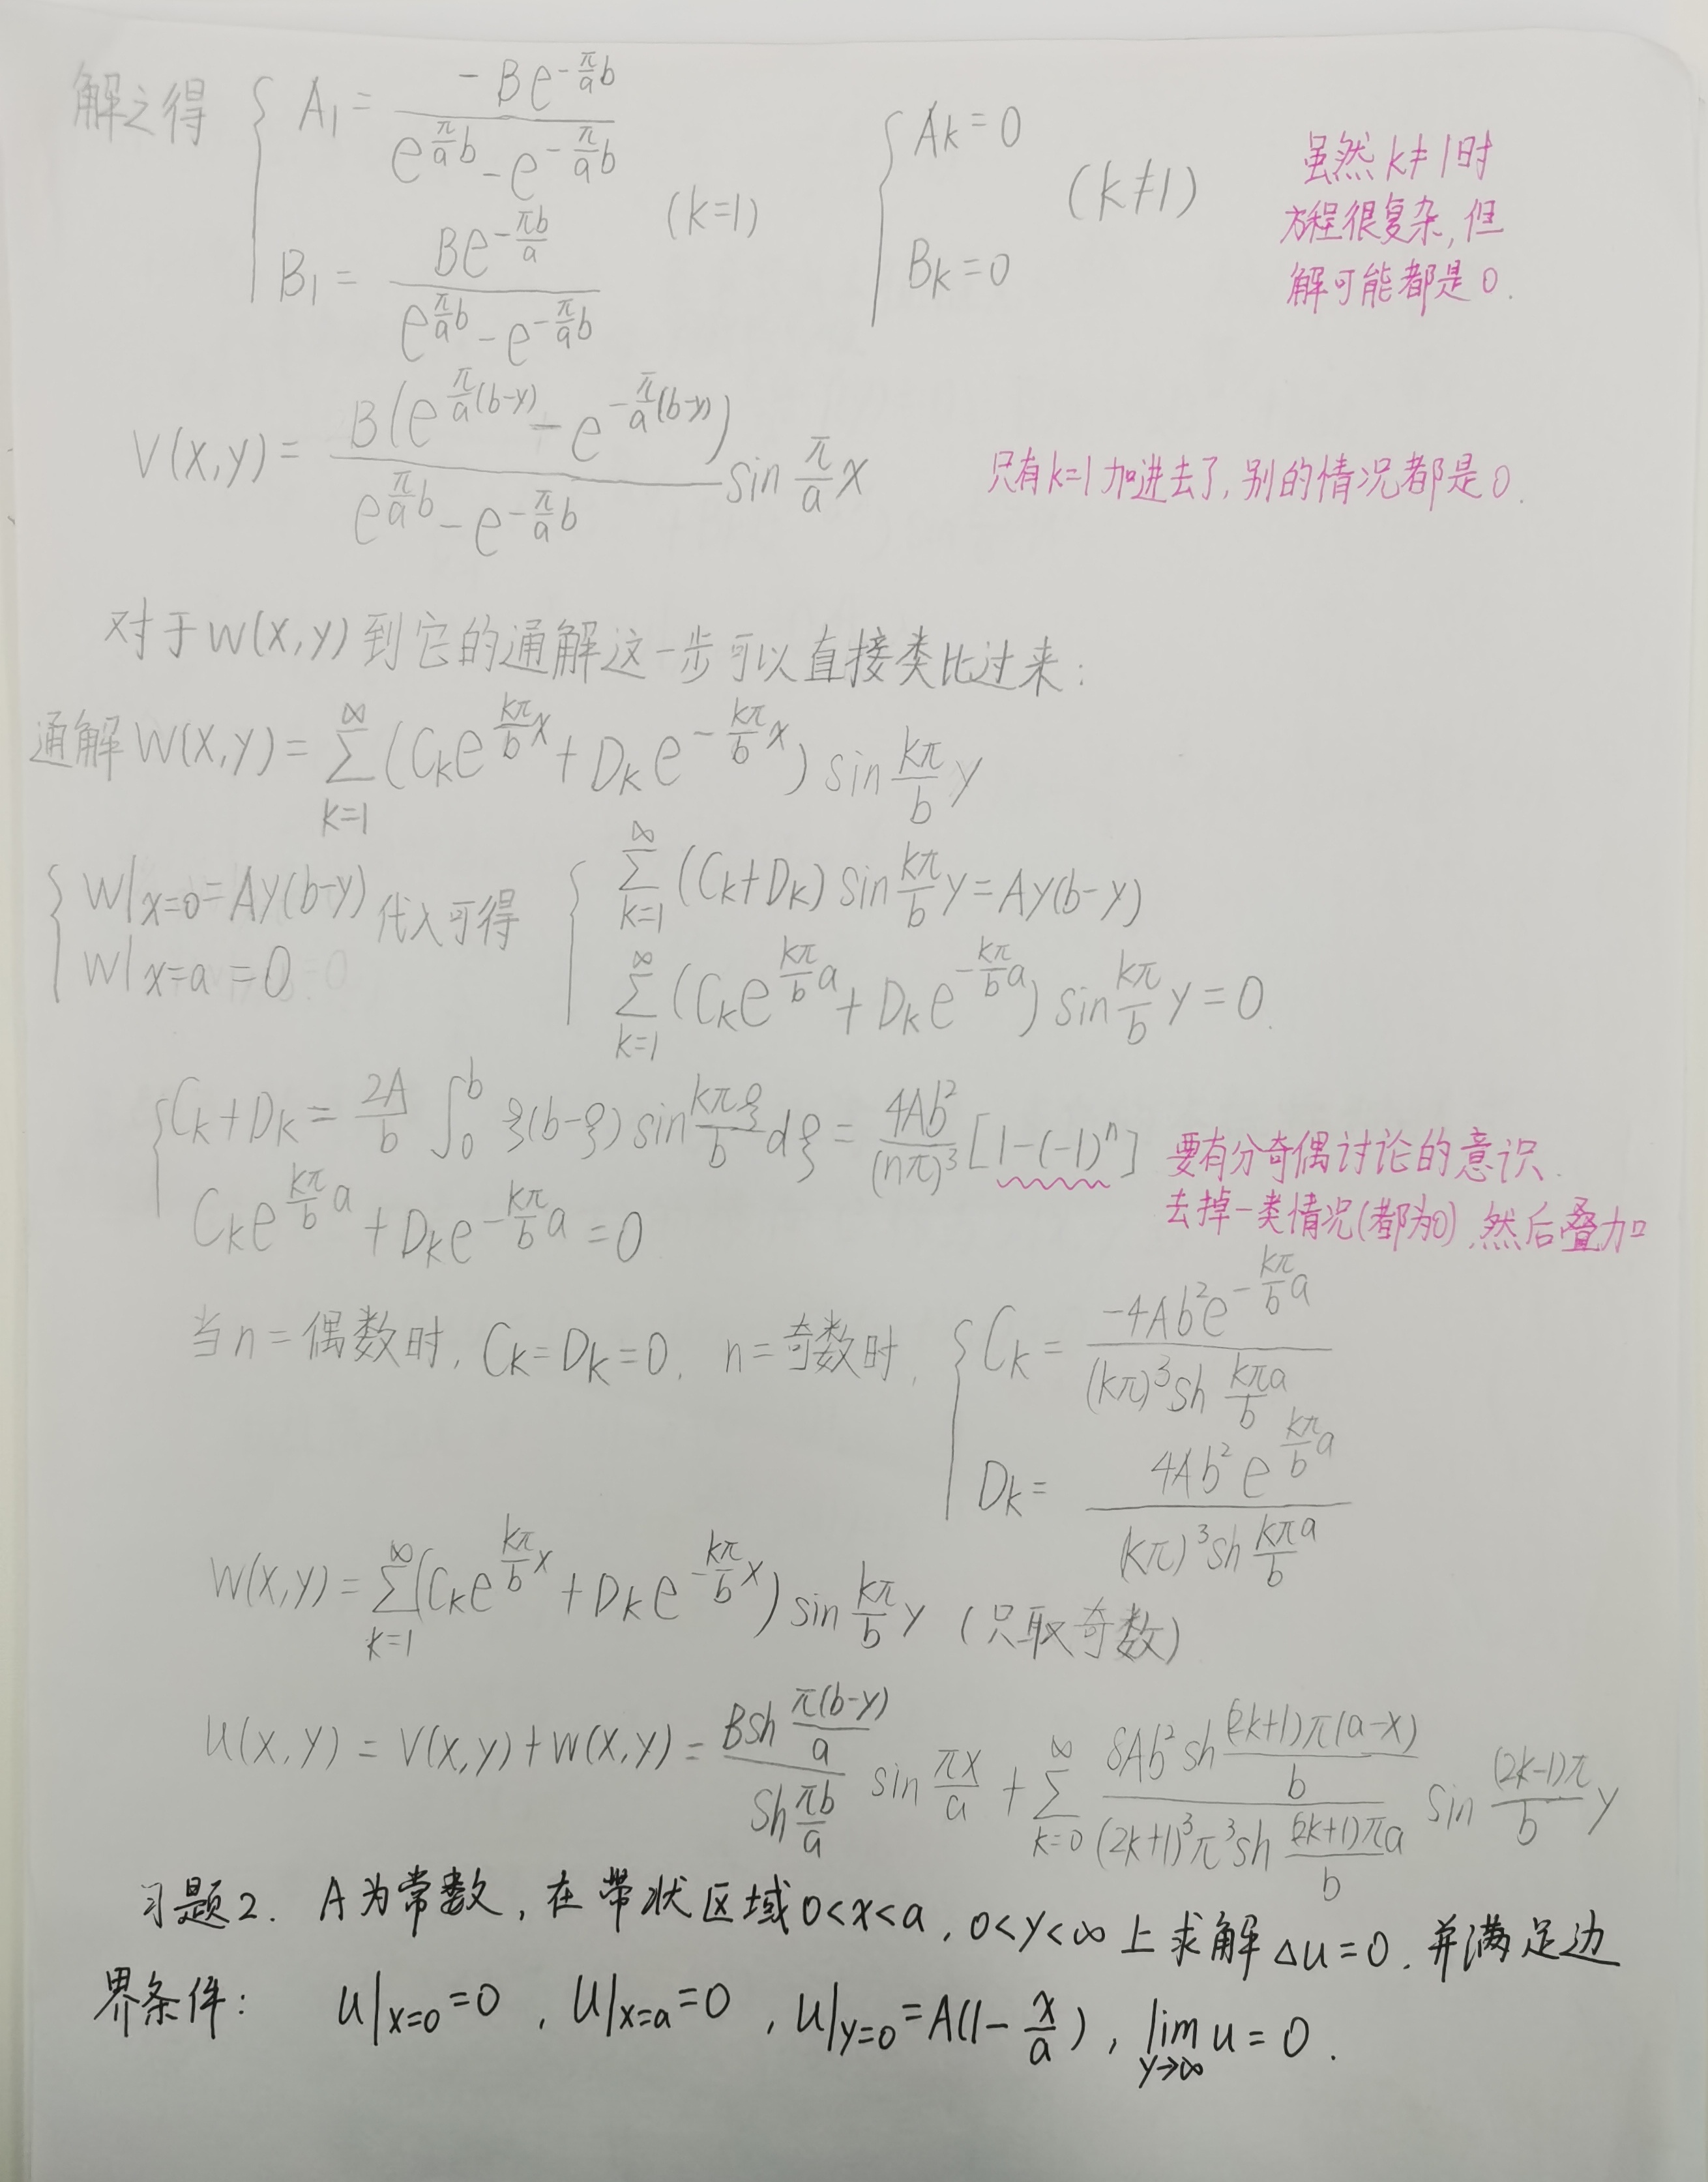 解之得 { A₁ = -Be^{-\frac{π}{a}b} / (e^{\frac{π}{a}b} - e^{-\frac{π}{a}b})
B₁ = Be^{-\frac{πb}{a}} / (e^{\frac{π}{a}b} - e^{-\frac{π}{a}b}) (k=1)
{ A_k = 0
B_k = 0 (k≠1)
虽然 k≠1时
方程很复杂, 但
解可能都是 0.
V(x,y) = \frac{B(e^{\frac{π}{a}(b-y)} - e^{-\frac{π}{a}(b-y)})}{e^{\frac{π}{a}b} - e^{-\frac{π}{a}b}} sin \frac{π}{a} x
只有k=1加进去了, 别的情况都是0.
对于W(x,y)到它的通解这一步可以直接类比过来:
通解 W(x,y) = \sum_{k=1}^{∞} (C_k e^{\frac{kπ}{b}x} + D_k e^{-\frac{kπ}{b}x}) sin \frac{kπ}{b} y
{ W|_{x=0} = Ay(b-y)
W|_{x=a} = 0
代入可得
{ \sum_{k=1}^{∞} (C_k + D_k) sin \frac{kπ}{b} y = Ay(b-y)
\sum_{k=1}^{∞} (C_k e^{\frac{kπ}{b}a} + D_k e^{-\frac{kπ}{b}a}) sin \frac{kπ}{b} y = 0.
{ C_k + D_k = \frac{2A}{b} \int_0^b ξ(b-ξ) sin \frac{kπξ}{b} dξ = \frac{4Ab^2}{(nπ)^3} [1-(-1)^n]
C_k e^{\frac{kπ}{b}a} + D_k e^{-\frac{kπ}{b}a} = 0
要有分奇偶讨论的意识.
去掉一类情况(都为0), 然后叠加
当n=偶数时, C_k = D_k = 0. n=奇数时, { C_k = \frac{-4Ab^2 e^{-\frac{kπ}{b}a}}{(kπ)^3 sh \frac{kπa}{b}}
D_k = \frac{4Ab^2 e^{\frac{kπ}{b}a}}{(kπ)^3 sh \frac{kπa}{b}}
W(x,y) = \sum_{k=1}^{∞} (C_k e^{\frac{kπ}{b}x} + D_k e^{-\frac{kπ}{b}x}) sin \frac{kπ}{b} y (只取奇数)
U(x,y) = V(x,y) + W(x,y) = \frac{B sh \frac{π(b-y)}{a}}{sh \frac{πb}{a}} sin \frac{πx}{a} + \sum_{k=0}^{∞} \frac{8Ab^2 sh \frac{(2k+1)π(a-x)}{b}}{(2k+1)^3 π^3 sh \frac{(2k+1)πa}{b}} sin \frac{(2k-1)π}{b} y
习题2. A为常数, 在带状区域0<x<a, 0<y<∞上求解 Δu=0. 并满足边
界条件: U|_{x=0}=0, U|_{x=a}=0, U|_{y=0}=A(1-\frac{x}{a}), \lim_{y→∞} u = 0.